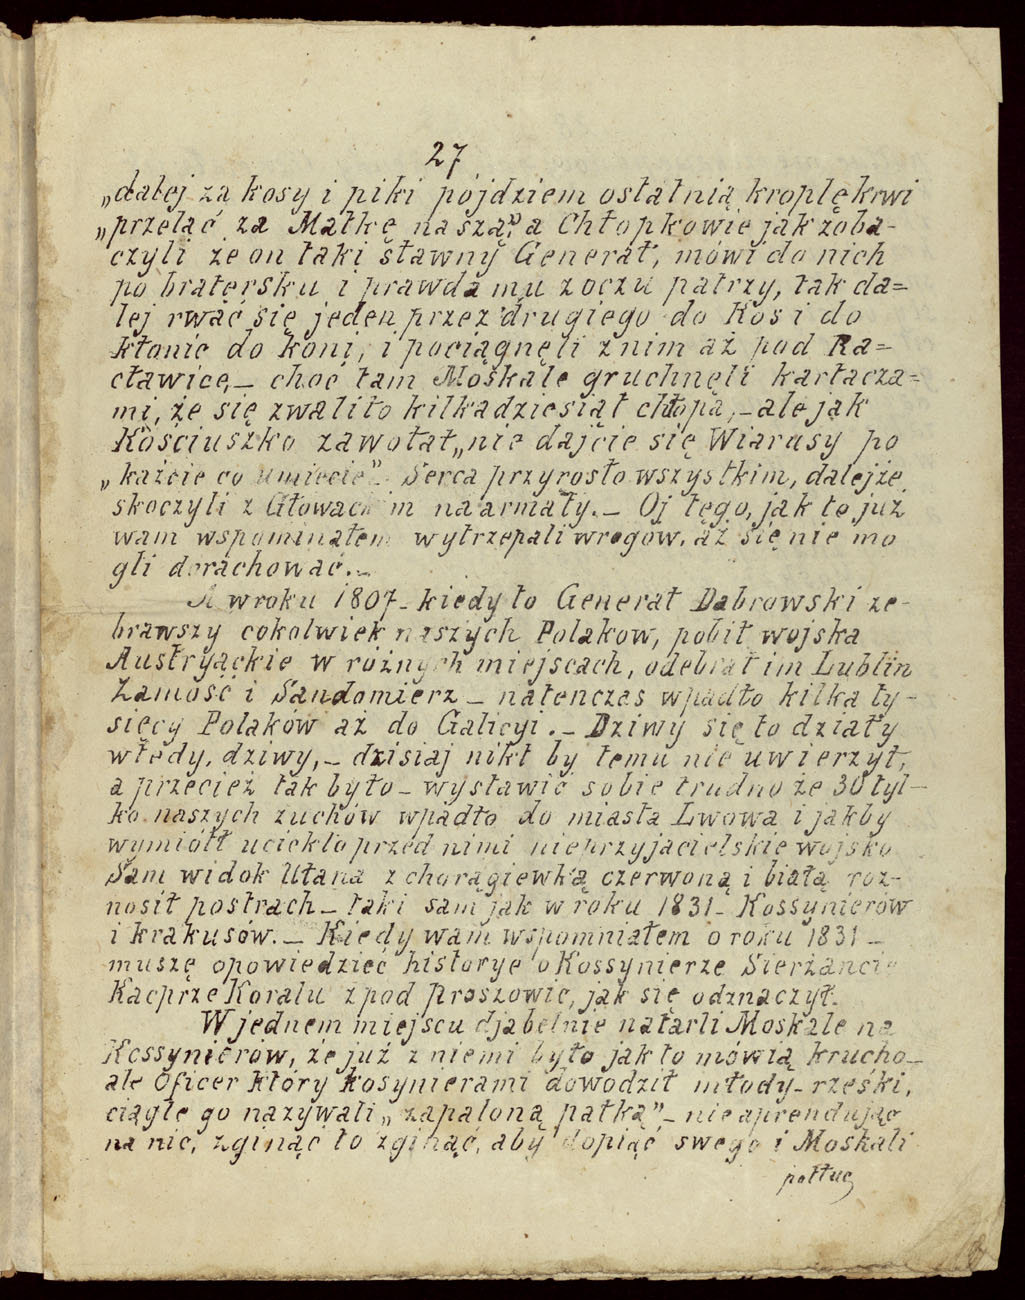 27
„dalej za kosy i piki pójdziem ostatnią kroplę krwi
„przelać za Matkę naszą", a Chłopkowie jak zoba-
czyli że on taki sławny Generał, mówi do nich
po bratersku i prawda mu z oczu patrzy, tak da=
lej rwać się jeden przez drugiego do Kos i do
kłonic do koni, i pociągnęli z nim aż pod Ra=
cławice_ choć tam Moskale gruchnęli kartacza=
mi, że się zwaliło kilkadziesiąt chłopa,_ ale jak
Kościuszko zawołał „nie dajcie się Wiarusy po
„każcie co umiecie". Serca przyrosło wszystkim, dalejże
skoczyli z Głowackim na armaty._ Oj tego, jak to już
wam wspominałem wytrzepali wrogów, aż się nie mo
gli dorachować._
A w roku 1807_ kiedy to Generał Dabrowski ze-
brawszy cokolwiek naszych Polakow, pobił wojska
Austryackie w różnych miejscach, odebrał im Lublin
Zamość i Sandomierz_ natenczas wpadło kilka ty-
sięcy Polaków aż do Galicyi._ Dziwy się to działy
wtedy, dziwy,_ dzisiaj nikt by temu nie uwierzył,
a przecież tak było_ wystawić sobie trudno że 30 tyl-
ko naszych zuchów wpadło do miasta Lwowa i jakby
wymiótł uciekło przed nimi nieprzyjacielskie wojsko
Sam widok Ułana z chorągiewką czerwoną i białą roz-
nosił postrach_ taki sam jak w roku 1831_ Kossynierów
i krakusów._ Kiedy wam wspomniałem o roku 1831_
muszę opowiedzieć historye o Kossynierze Sierżancie
Kacprze Koralu z pod Proszowic, jak się odznaczył.
W jednem miejscu djabelnie natarli Moskale na
Kossynierów, że już z niemi było jak to mówią krucho_
ale Oficer który kosynierami dowodził młody_ rzeski,
ciągle go nazywali „zapaloną pałką"_ nie aprendując
na nic, zginąć to zginąć, aby dopiąć swego i Moskali
potłuc